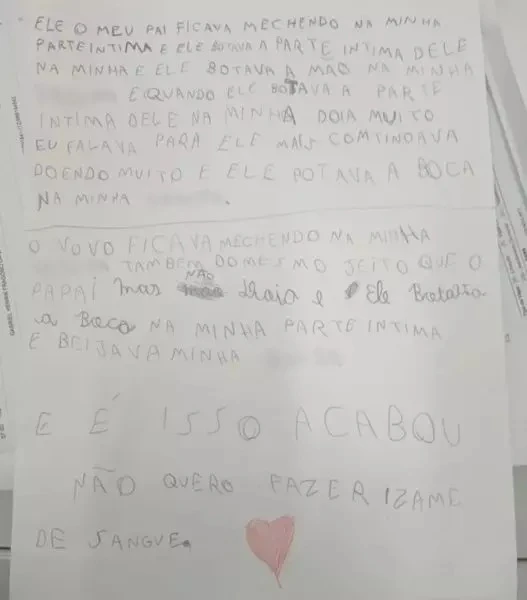 ELE O MEU PAI FICAVA MECHENDO NA MINHA
PARTE INTIMA E ELE BOTAVA A PARTE INTIMA DELE
NA MINHA E ELE BOTAVA A MAO NA MINHA
E QUANDO ELE BOTAVA A PARTE
INTIMA DELE NA MINHA DOIA MUITO
EU FALAVA PARA ELE MAIS COMTINOAVA
DOENDO MUITO E ELE POTAVA A BOCA
NA MINHA .
O VOVO FICAVA MECHENDO NA MINHA
TAMBEM DO MESMO JEITO QUE O
PAPAI mas NÃO e Ele
a Boca NA MINHA PARTE INTIMA
E BEIJAVA MINHA
E É ISSO ACABOU
NÃO QUERO FAZER IZAME
DE SANGUE.